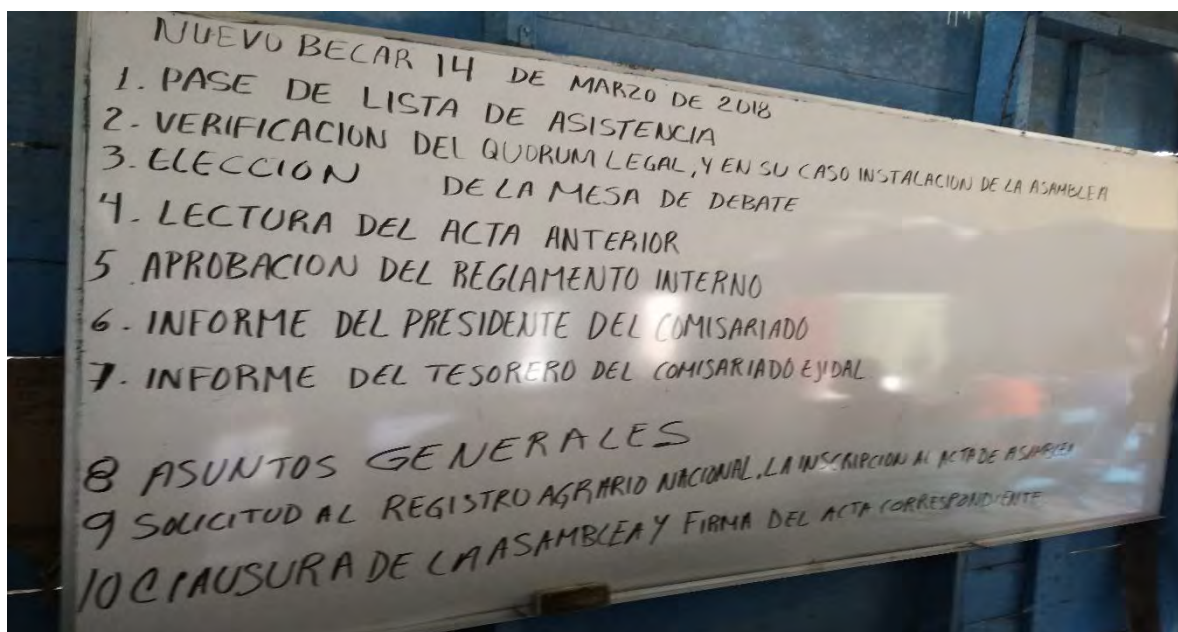 NUEVO BECAR 14 DE MARZO DE 2018
1. PASE DE LISTA DE ASISTENCIA
2. VERIFICACION DEL QUORUM LEGAL, Y EN SU CASO INSTALACION DE LA ASAMBLEA
3. ELECCION DE LA MESA DE DEBATE
4. LECTURA DEL ACTA ANTERIOR
5 APROBACION DEL REGLAMENTO INTERNO
6. INFORME DEL PRESIDENTE DEL COMISARIADO
7. INFORME DEL TESORERO DEL COMISARIADO EJIDAL
8 ASUNTOS GENERALES
9 SOLICITUD AL REGISTRO AGRARIO NACIONAL, LA INSCRIPCION AL ACTA DE ASAMBLEA
10 CLAUSURA DE LA ASAMBLEA Y FIRMA DEL ACTA CORRESPONDIENTE